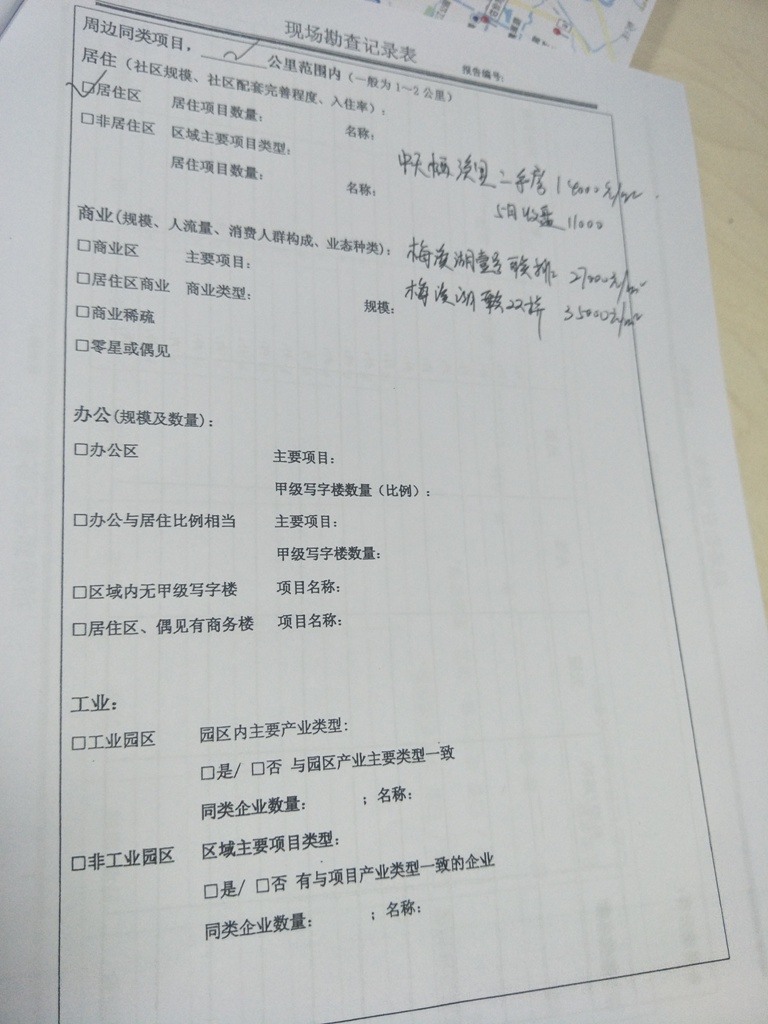 现场勘查记录表
报告编号:
周边同类项目，______公里范围内（一般为1～2公里）
居住（社区规模、社区配套完善程度、入住率）:
□居住区 居住项目数量: 名称:
□非居住区 区域主要项目类型:
居住项目数量: 名称:
二手房 14000元/m²
5月收盘 11000
商业(规模、人流量、消费人群构成、业态种类):
□商业区 主要项目:
梅溪湖 联排 27000元/m²
□居住区商业 商业类型: 规模:
梅溪湖 双拼 35000元/m²
□商业稀疏
□零星或偶见
办公(规模及数量):
□办公区 主要项目:
甲级写字楼数量（比例）:
□办公与居住比例相当 主要项目:
甲级写字楼数量:
□区域内无甲级写字楼 项目名称:
□居住区、偶见有商务楼 项目名称:
工业:
□工业园区 园区内主要产业类型:
□是/ □否 与园区产业主要类型一致
同类企业数量: ；名称:
□非工业园区 区域主要项目类型:
□是/ □否 有与项目产业类型一致的企业
同类企业数量: ；名称: